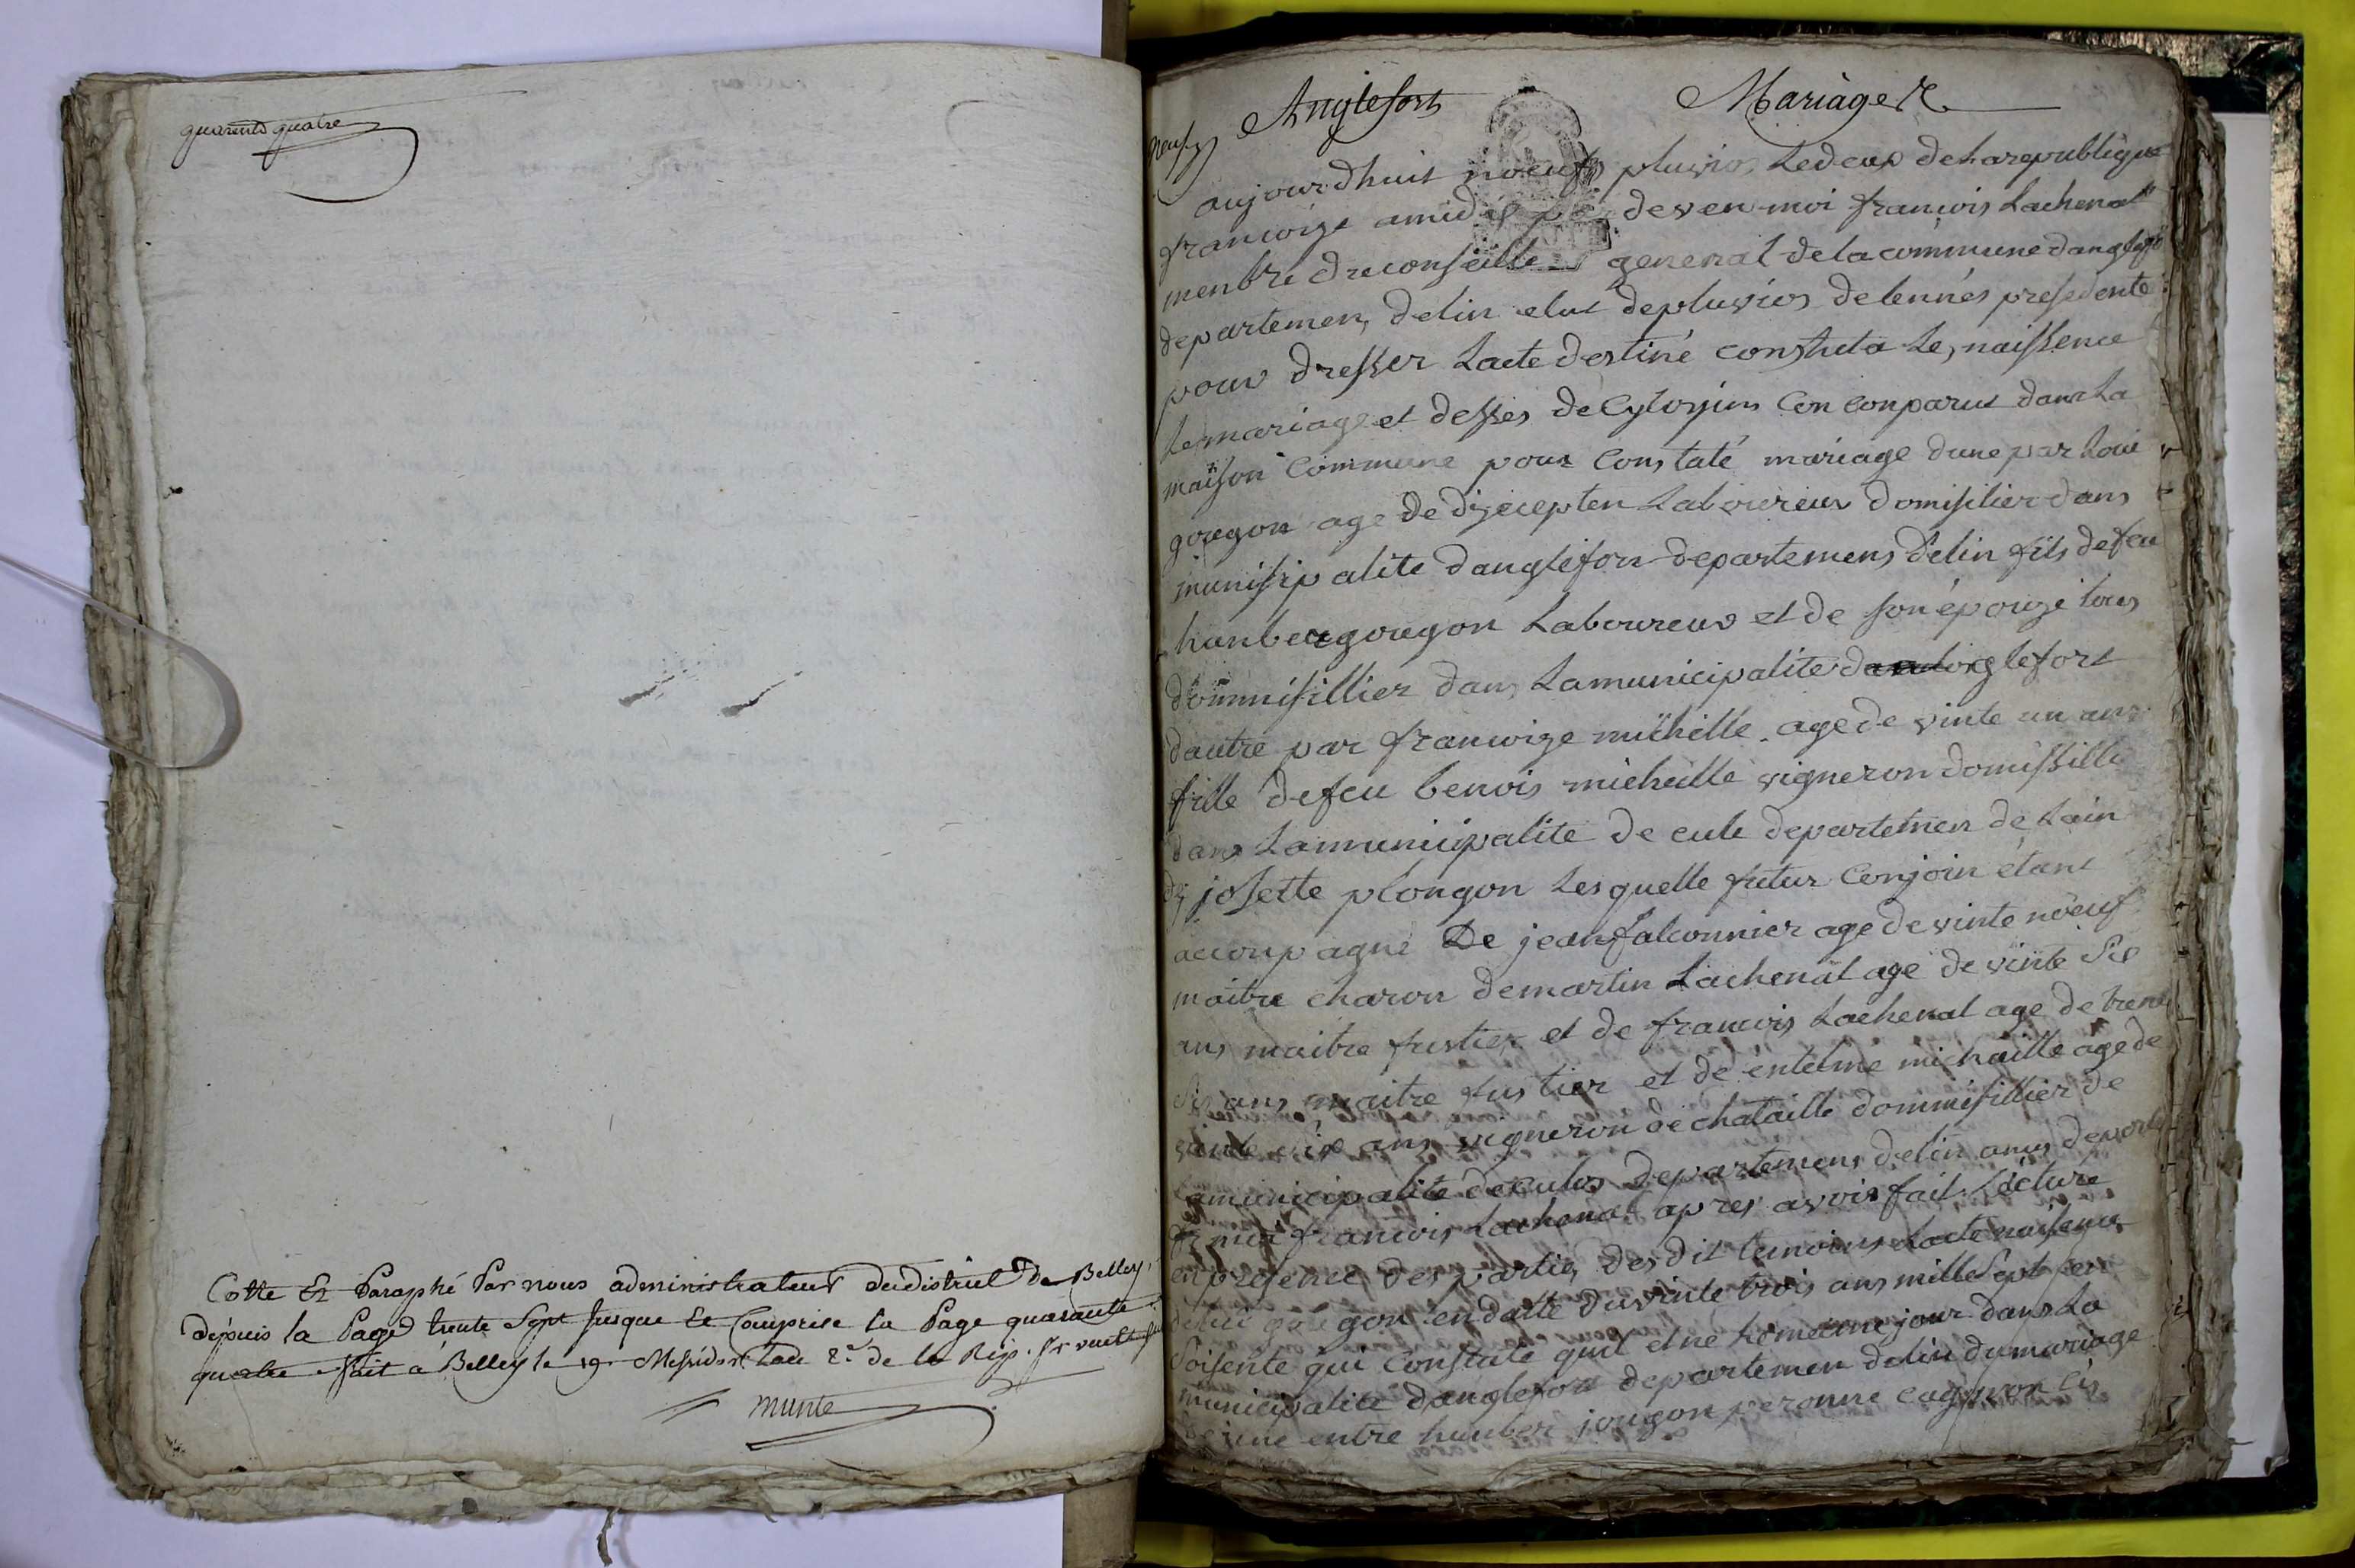 quarente quatre
Cotté Et Paraphé Par nous administrateur du district de Belley
depuis la Page trente Sept jusque Et Comprise la Page quarante
quatre fait à Belley le 19e Messidor L'an 2e de la Rep. fr
munte
Anglefort Mariage
neuf
aujourdhuit noeuf pluvios Ledeux delarepubligue
francoize amidis par deven moi francois Lachenal
menbre dreconseille general de la commune danglefor
departemen, delin elut depluvios delennés presedente
pour dresser Lacte destiné constata Les naissence
Les mariage et desses de Cytoyins Con conparut dans La
maison Commune pour Constaté mariage dune par Loui
gougon age de dizecepten Laboureur domisilier dans
munisipalité danglefor departemens delin fils defeu
hunber gougon Laboureur et de son épouze tous
dommisillier dans Lamunicipalite danglefort
dautre par francoize michille age de vinte un ans
fille defeu benois micheille vigneron domissillie
dans Lamunicipalite de cule departemen de Lain
de josette plongon Lesquelle futur Conjoin étant
accoupagné De jean falconnier age de vinte noeuf
maitre charon demartin Lachenal age de vinte Sis
ans maitre fustier et de francois Lachenal age de trente
Sis ans maitre fustier et de entelme michaille age de
vinte six ans vigneron de chataille dommisillier de
Lamunicipalite deculos departemens delin amis departi
Et moi francois Lachenal apres avoir fait Lecture
en presence des partie, des dit temoins Lacte naisence
gougon en datte du vinte trois ans mille Sept cen
Soisente qui Constate quil et né Lomeme jour dans La
municipalite danglefor departemen delin du mariage
entre hunber jougon peronne